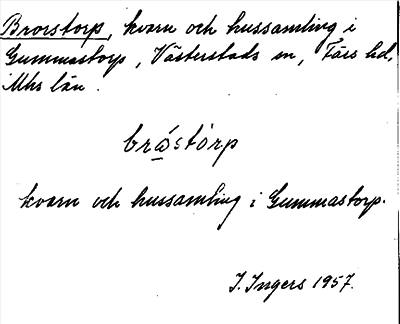 Brorstorp, kvarn och hussamling i
Gummastorp, Västerstads sn, Färs hd,
Mhs län.
brɷ́stòrp
kvarn och hussamling i Gummastorp.
I. Ingers 1957.